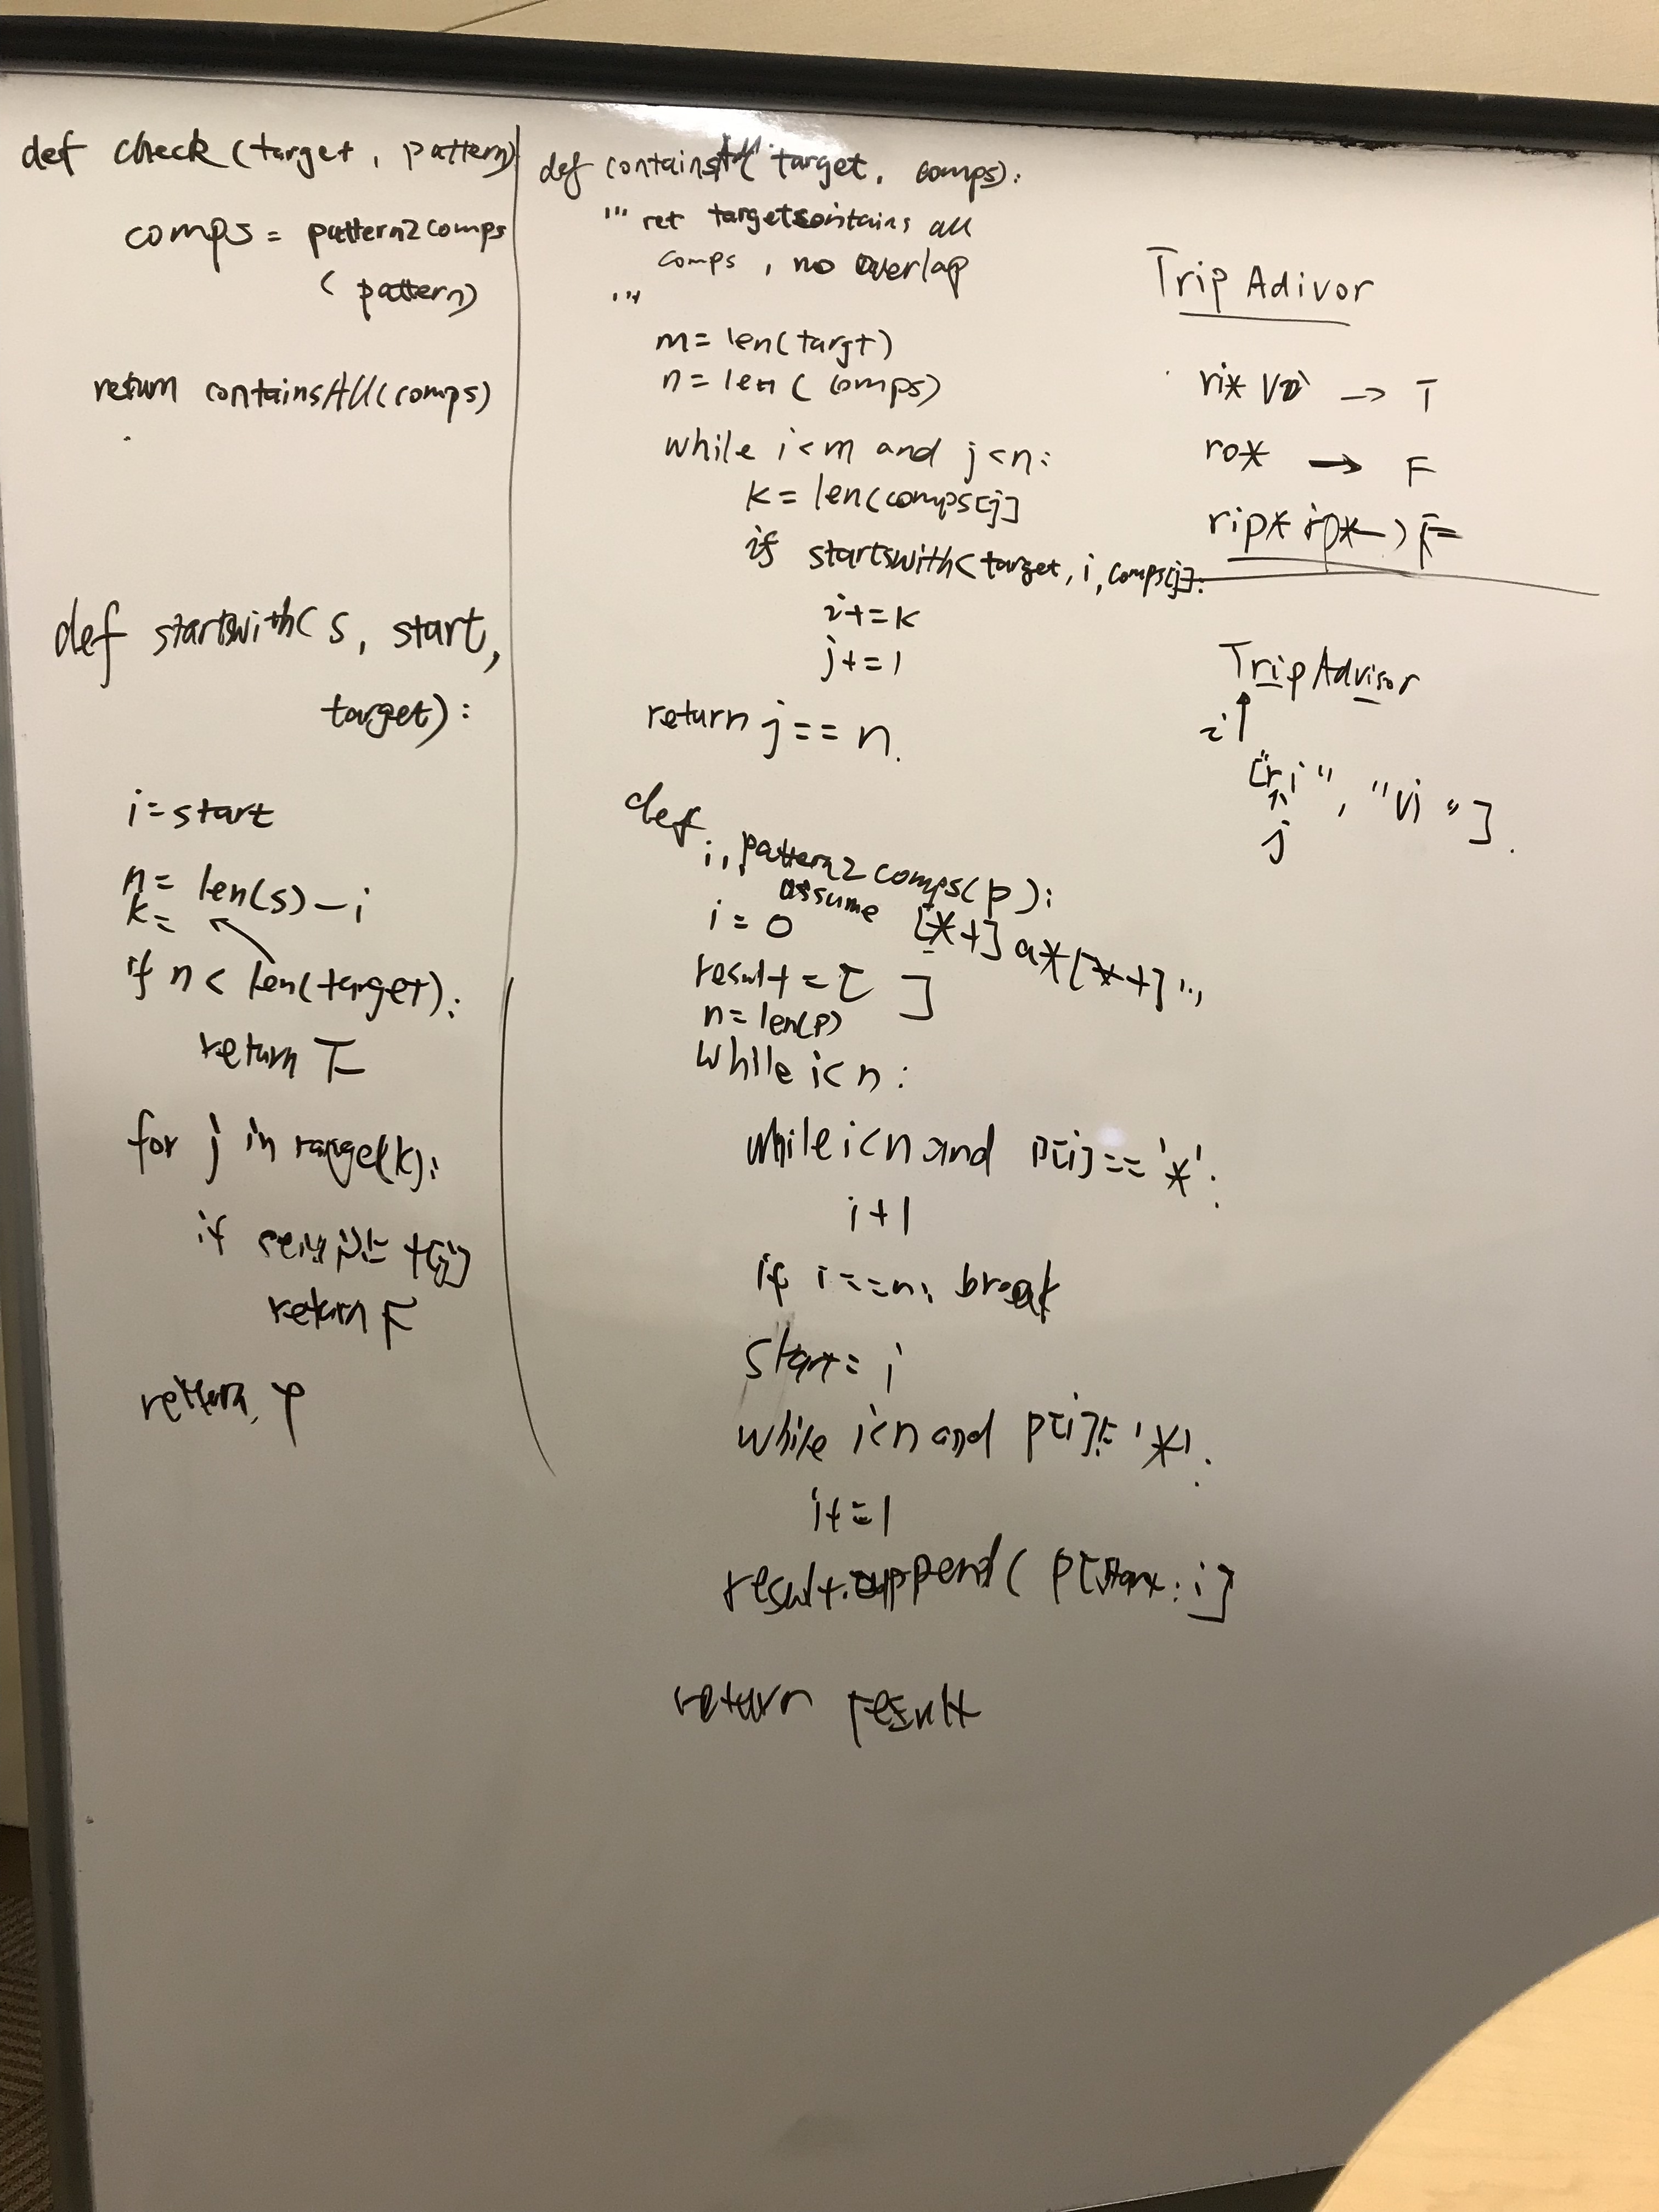 def check(target, pattern)
comps = pattern2comps
(pattern)
return containsAll(comps)
def startswith(s, start,
target):
i=start
n= len(s)-i
k=
if n< len(target):
return T
for j in range(k):
if t[j]
return F
return
def containsAll(target, comps):
''' ret target contains all
comps, no overlap
'''
m=len(targt)
n=len(comps)
while i<m and j<n:
k=len(comps[j]
if startswith(target, i, comps[j]):
i+=k
j+=1
return j==n.
def pattern2comps(p):
''' assume [*+]a*[*+]'''
i=0
result=[ ]
n=len(p)
while i<n:
while i<n and p[i]=='*':
i+1
if i==n: break
start=i
while i<n and p[i]!='*':
i+=1
result.append(p[start:i]
return result
Trip Adivor
ri* → T
ro* → F
rip*ip* → F
TripAdvisor
i
["ri", "vi"].
j